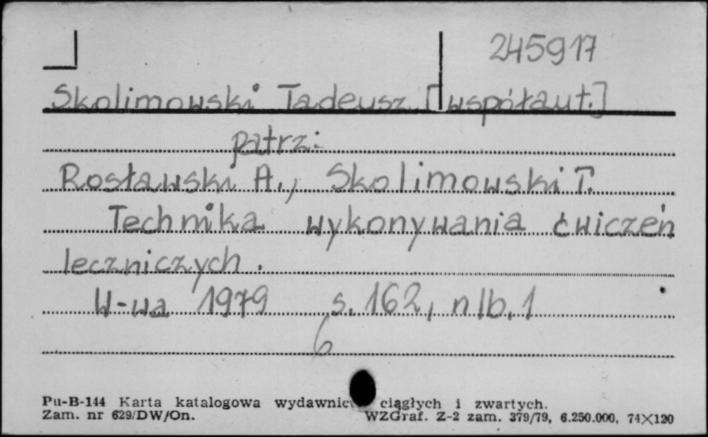 245917
Skolimowski Tadeusz [współaut.]
patrz:
Rosławski A., Skolimowski T.
Technika wykonywania ćwiczeń
leczniczych.
W-wa 1979 s. 162, nlb. 1
6
Pu-B-144 Karta katalogowa wydawnic ciągłych i zwartych.
Zam. nr 629/DW/On. WZGraf. Z-2 zam. 379/79, 6.250.000, 74×120